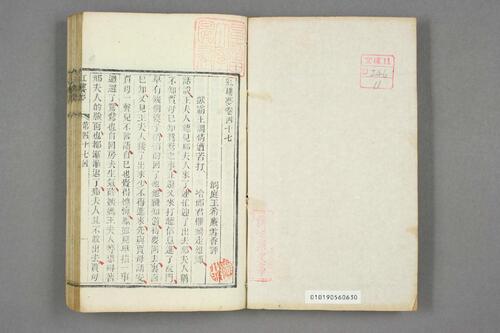 紅樓夢卷四十七
洞庭王希廉雪香評
獃霸王調情遭苦打
冷郎君懼禍走他鄉
話說王夫人聽見邢夫人來了連忙迎了出去邢夫人猶
不知賈母已知鴛鴦之事正還又來打聽信息進了院門
早有幾個婆子悄悄的回了他他纔知道待要回去裏面
已知又見王夫人接了出來少不得進來先與賈母請安
賈母一聲兒不言語自己也覺得愧悔鳳姐兒早指一事
迴避了鴛鴦也自回房去生氣薛姨媽王夫人等恐碍着
邢夫人的臉面也都漸漸退了邢夫人且不敢出去賈母
紅樓夢
第四十七回
010190560630